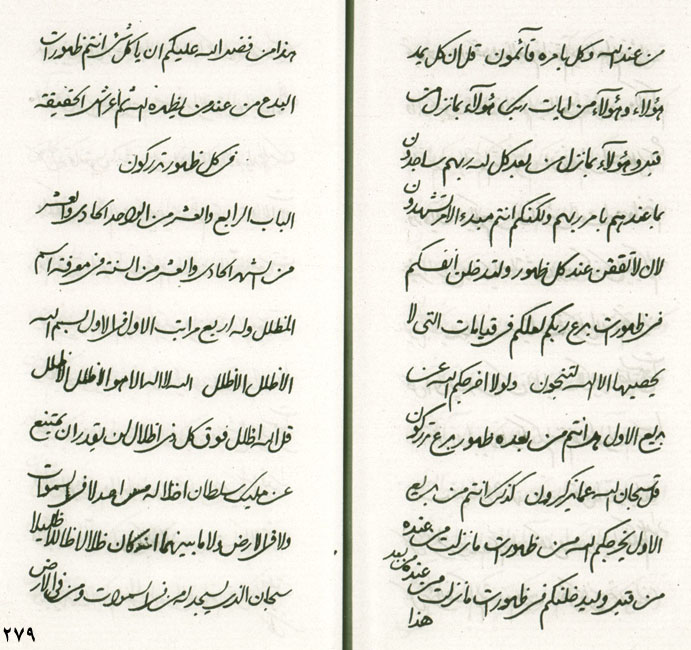 من عند الله وكل بامره قآئمون قل ان كل يد
هؤلآء وهؤلآء من ايات ربك هؤلآء بما نزل من
قبل وهؤلآء بما نزل من بعد كل لله ربهم ساجدون
بما عندهم بامر ربهم ولكنكم انتم مبدء الامر تشهدون
لان لا تقفن عند كل ظهور ولتدخلن انفسكم
في ظهورات بدع ربكم لعلكم في قيامات التي لا
يحصيها الا الله لتنجون ولولا اخرجكم الله عن
بديع الاول هل انتم من بعده ظهور بدع تدركون
قل سبحان الله عما تذكرون كذلك انتم من بديع
الاول يخرجكم الله من ظهورات ما نزلت من عنده
من قبل وليدخلنكم في ظهورات ما نزلت من عنده من بعد
هذا
هذا من فضل الله عليكم ان يا كل شئ انتم ظهورات
البدع من عند من يظهره الله ثم اعراش الحقيقة
في كل ظهور تدركون
الباب الرابع والعشر من الواحد الحادي والعشر
من الشهر الحادي والعشر من السنة في معرفة اسم
المظلل وله اربع مراتب الاول في الاول بسم الله
الاظلل الاظلل الله لا اله الا هو الاظلل الاظلل
قل الله اظلل فوق كل ذي اظلال لن يقدر ان يمتنع
عن مليك سلطان اظلاله من احد لا في السموات
ولا في الارض ولا ما بينهما انه كان ظلالا ظاللا ظليلا
سبحان الذي يسجد له من في السموات ومن في الارض
٢٧٩